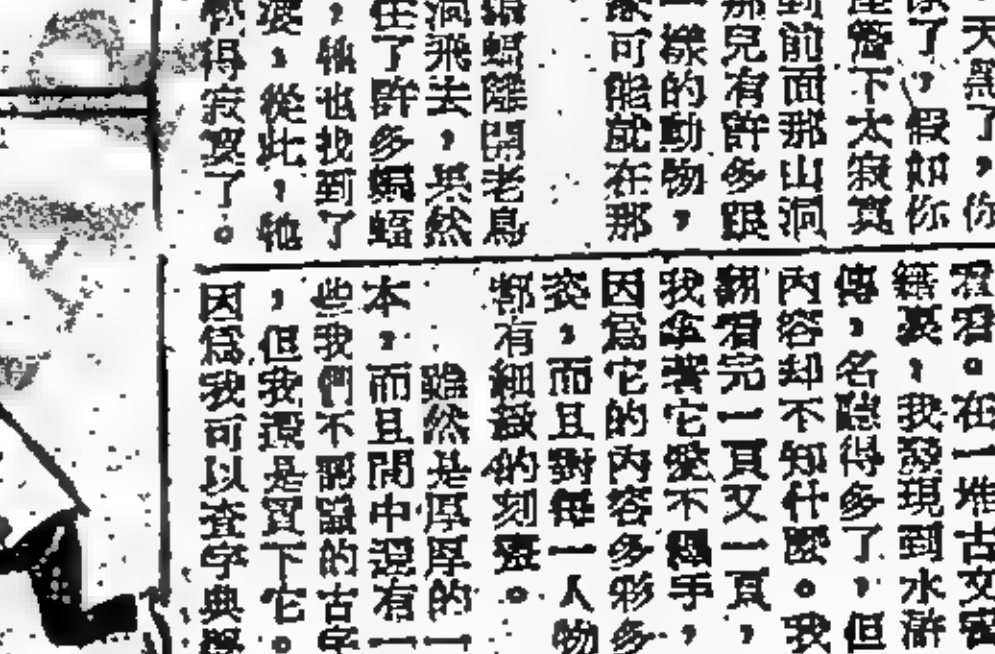 天黑了，你
了，假如你
簷下太寂寞
到前面那山洞
那兒有許多跟
一樣的動物，
可能就在那
蝠離開老鳥
洞飛去，果然
在了許多蝙蝠
，牠也找到了
，從此，牠
得寂寞了。
看看。在一堆古文書
籍裏，我發現到水
滸傳，名聽得多了，但
內容却不知什麼。我
翻看完一頁又一頁，
我拿著它愛不釋手，
因為它的內容多彩多
姿，而且對每一人物
都有細緻的刻畫。
雖然是厚厚的一
本，而且間中還有一
些我們不認識的古字
，但我還是買下它。
因為我可以查字典